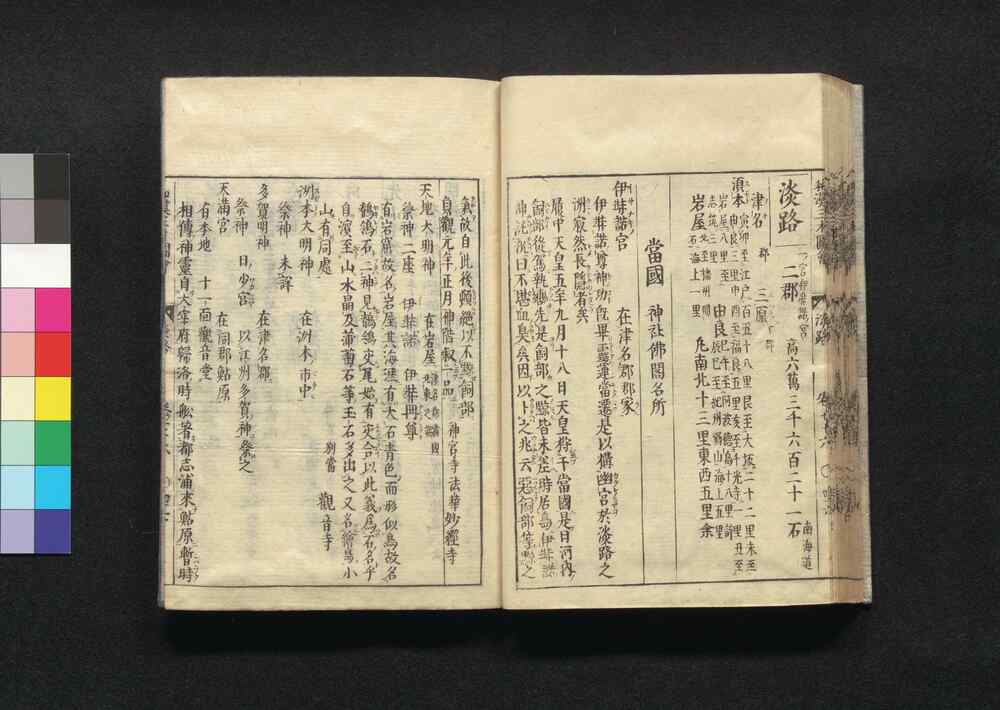 淡路
二郡
高六萬三千六百二十一石
南海道
津名郡
三原郡
須本
寅卯至江戸百五十八里艮至大坂二十二里未至
由良三里申酉至福良五里亥至千光寺一里丑至
志筑三里
岩屋八里至
由良
岩屋
海上一里
凡南北十三里東西五里余
當國
神社佛閣名所
伊弉諾宮
在津名郡郡家
伊弉諾尊神功既畢靈運當遷是以構幽宮於淡路之
洲寂然長隱者矣
履中天皇五年九月十八日天皇狩于當國是日河内
飼部從駕執轡先是飼部之黥皆未差時居島伊弉諾
神託祝曰不堪血臭矣因以卜之兆云惡飼部等黥之
氣故自此後頓絶以不黥飼部
貞觀元年正月神階叙一品
神宮寺法華妙經寺
天地大明神
在岩屋
祭神二座
伊弉諾
伊弉冊尊
有岩窟故名岩屋其海濱有大石青色而形似鳥故名
鶺鴒石二神見鶺鴒交尾始有交合以此義爲石名乎
自濱至山水晶及葡萄石等玉石多出之又名繪島小
山有同處
別當
觀音寺
洲本大明神
在洲本市中
祭神
未詳
多賀明神
在津名郡
祭神
日少宮
以江州多賀神祭之
天滿宮
在同郡鮎原
有本地
十一面觀音堂
相傳神靈自大宰府歸洛時舩着都志浦來鮎原暫時